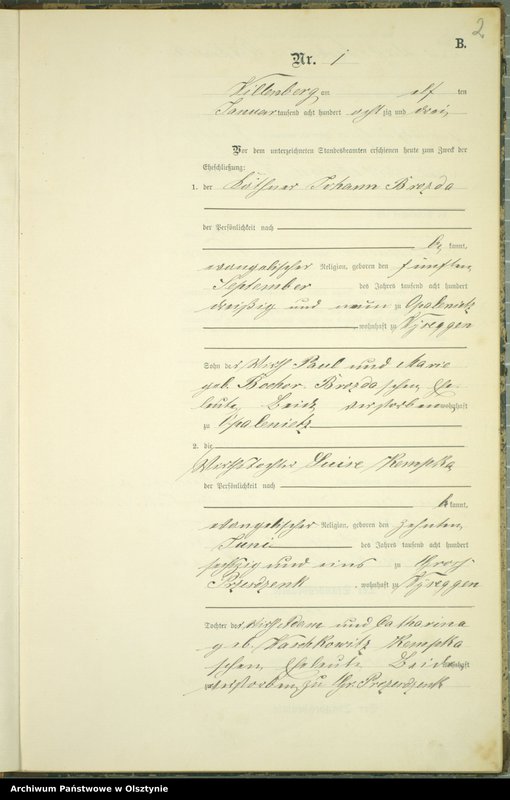 2
B.
Nr. 1
Willenberg am elf ten
Januar tausend acht hundert acht zig und drei,
Vor dem unterzeichneten Standesbeamten erschienen heute zum Zweck der
Eheschließung:
1. der Käthner Johann Brozda
der Persönlichkeit nach
be kannt,
evangelischer Religion, geboren den fünften
September des Jahres tausend acht hundert
dreißig und neun zu Opalenietz
, wohnhaft zu
Sohn des Wirth Paul und Marie
geb. Bochor Brozda schen Ehe-
leute, Beide verstorben wohnhaft
zu Opalenietz
2. die
Wirthstochter Luise Kempka
der Persönlichkeit nach
be kannt,
evangelischer Religion, geboren den zehnten
Juni des Jahres tausend acht hundert
sechzig und eins zu Groß
Przesdzenk, wohnhaft zu
Tochter des Wirth Adam und Catharina
geb. Waschkowitz Kempka
schen Eheleute Beide wohnhaft
verstorben zu Gr. Przesdzenk
Archiwum Państwowe w Olsztynie